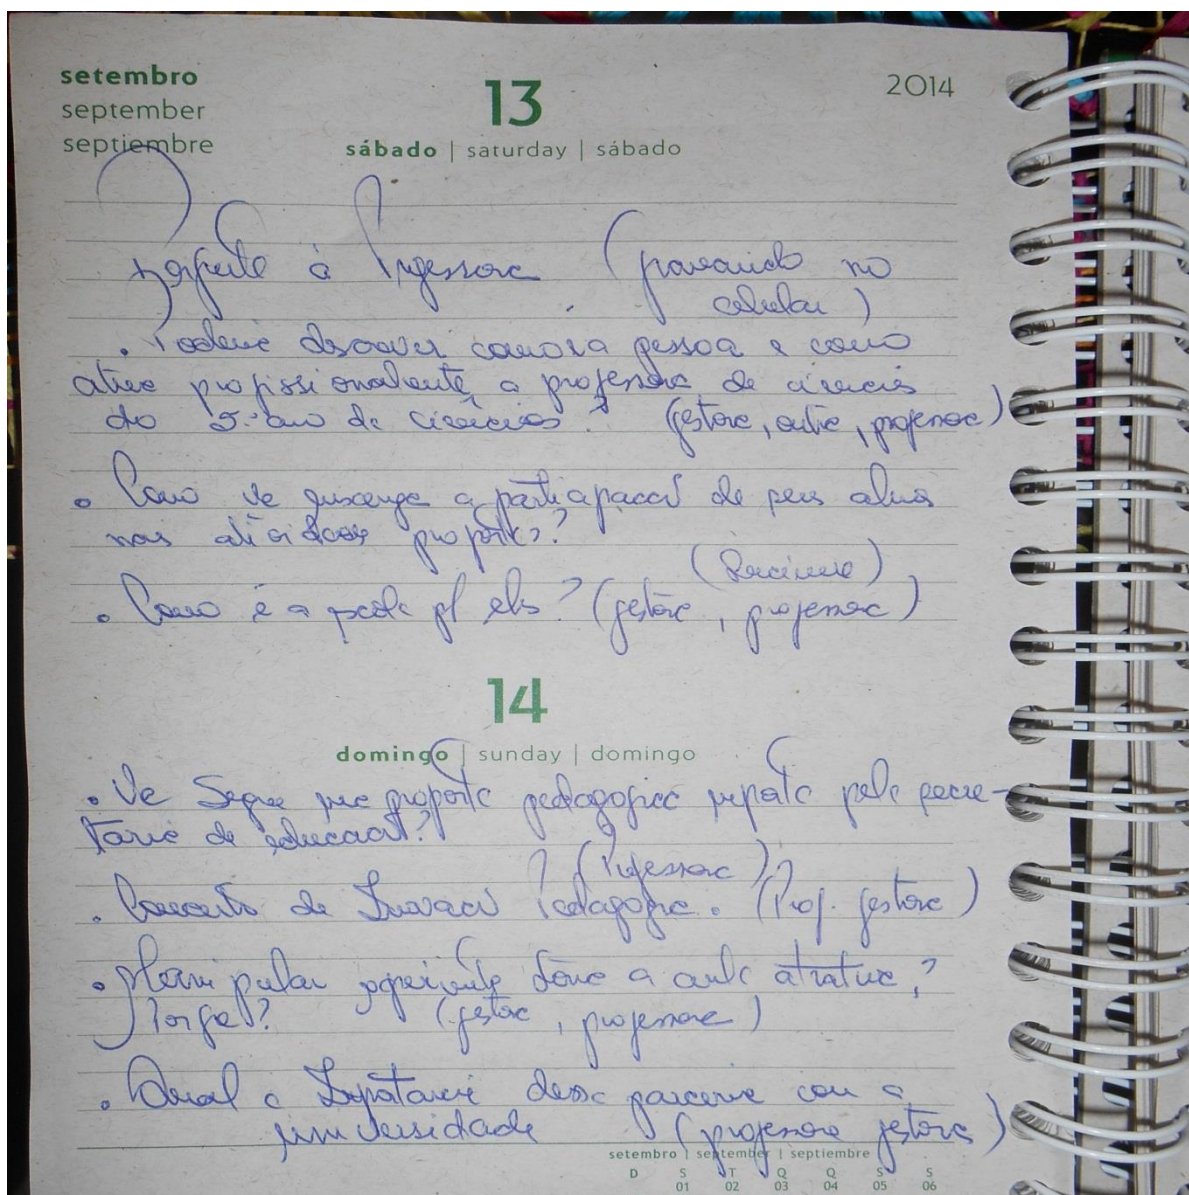 setembro
september
septiembre
13
2014
sábado | saturday | sábado
Pergunta à Professora (gravando no
celular)
. Poderia descrever como pessoa e como
atua profissionalmente a professora de ciências
do 5º ano de ciências? (gestora, outra, professora)
. Como vc enxerga a participação de seus alunos
nas atividades propostas?
. Como é a escola p/ eles? (gestora, professora)
14
domingo | sunday | domingo
. Vc segue uma proposta pedagógica proposta pela secre-
taria de educação?
(Professora)
. Conceito de Inovação Pedagógica. (Prof. gestora)
. Manipular experimento torna a aula atrativa?
Porque? (gestora, professora)
. Qual a importancia dessa parceria com a
universidade (professora gestora)
setembro | september | septiembre
D S T Q Q S S
01 02 03 04 05 06